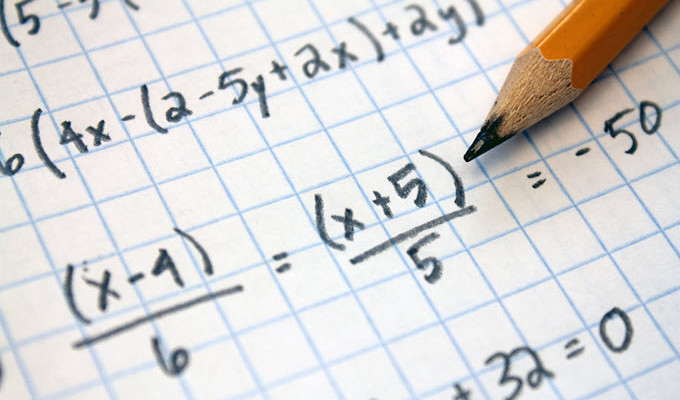 (5-
6(4x-(2-5y+2x)+2y)
(x-4)/6 = (x+5)/5 = -50
+32=0